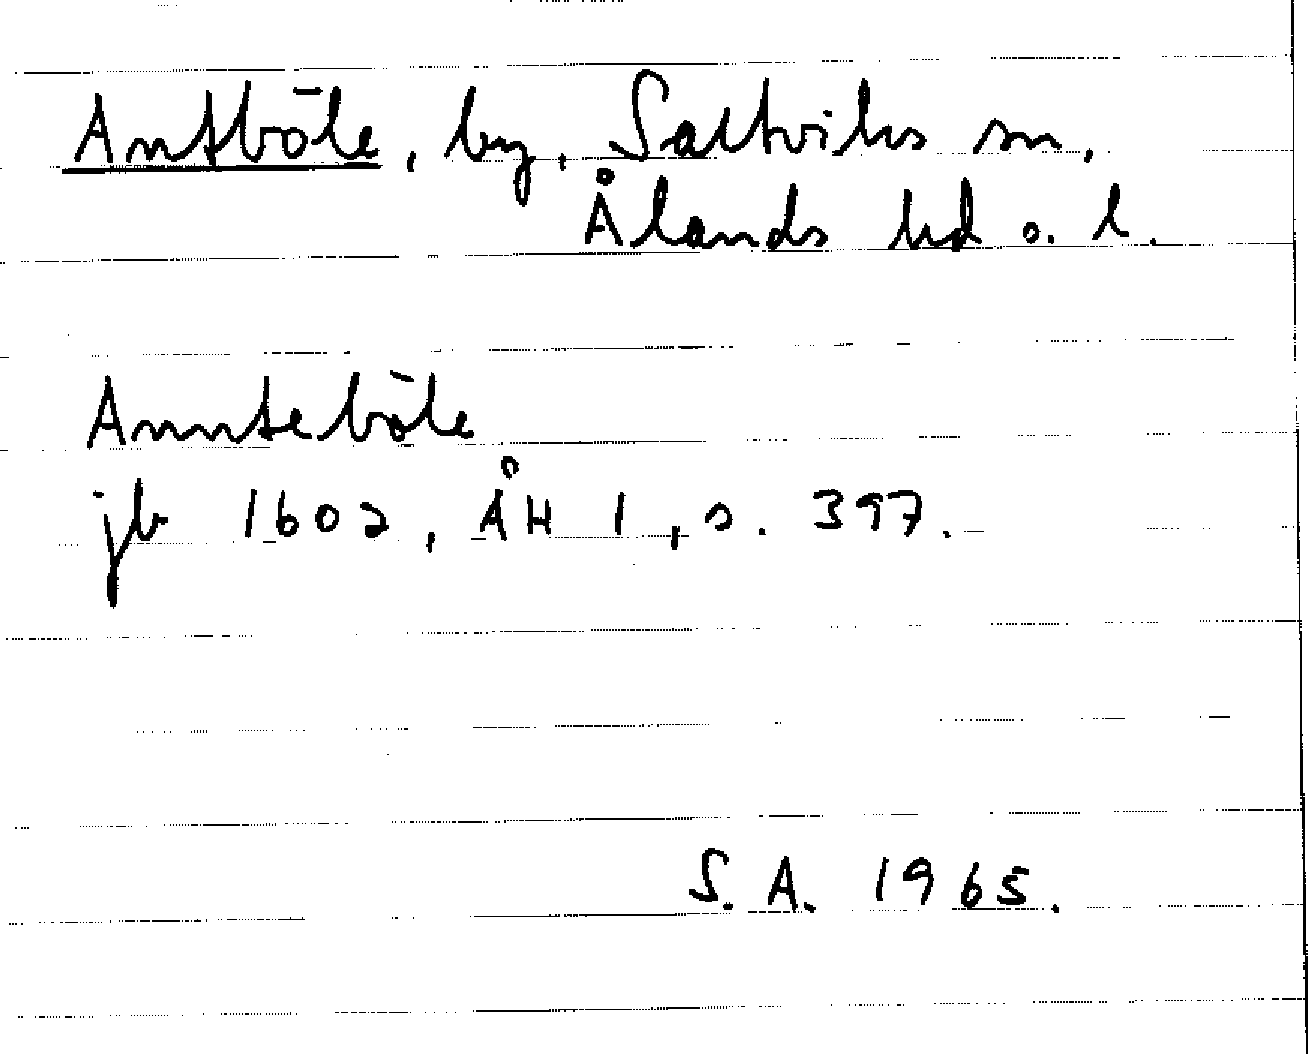 Antböle, by, Saltviks sn,
Ålands hd o. l.
Annteböle
jb 1602, ÅH 1, s. 397.
S. A. 1965.